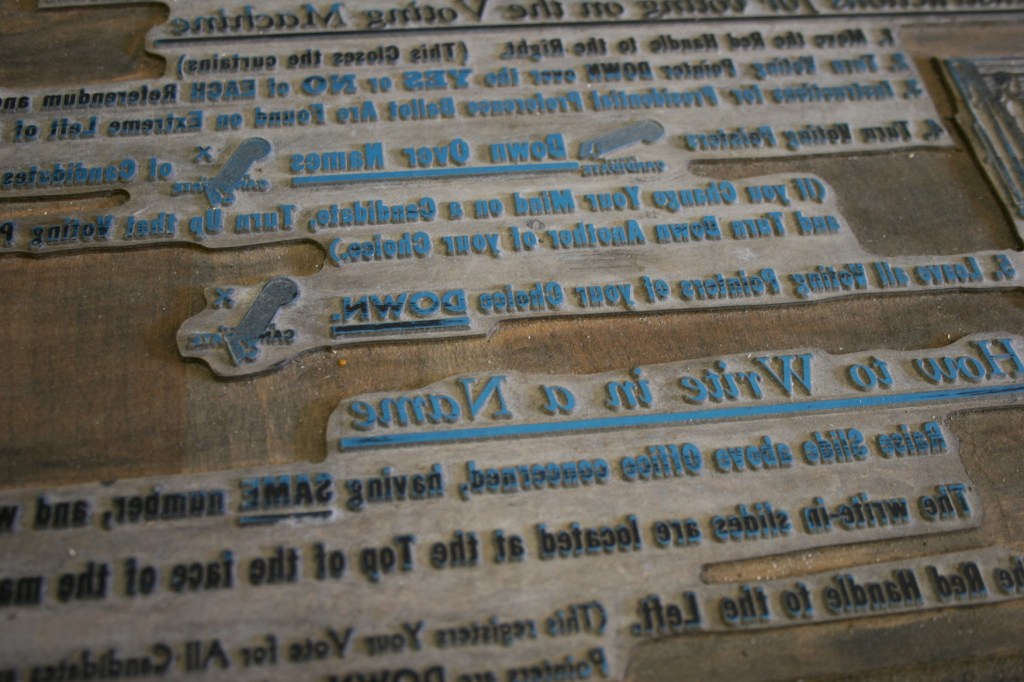 Instructions for Voting on the Voting Machine
1. Move the Red Handle to the Right. (This Closes the curtains)
2. Turn Voting Pointer DOWN over the YES or NO of EACH Referendum and
3. Instructions for Presidential Preference Ballot Are Found on Extreme Left of
4. Turn Voting Pointers CANDIDATE Down Over Names CANDIDATE X of Candidates
(If you Change Your Mind on a Candidate, Turn Up that Voting P
and Turn Down Another of your Choice.)
5. Leave all Voting Pointers of your Choice DOWN. CANDIDATE X
How to Write in a Name
Raise Slide above Office concerned, having SAME number, and, w
The write-in slides are located at the Top of the face of the ma
the Red Handle to the Left. (This registers Your Vote for All Candidates
Pointers are DOWN